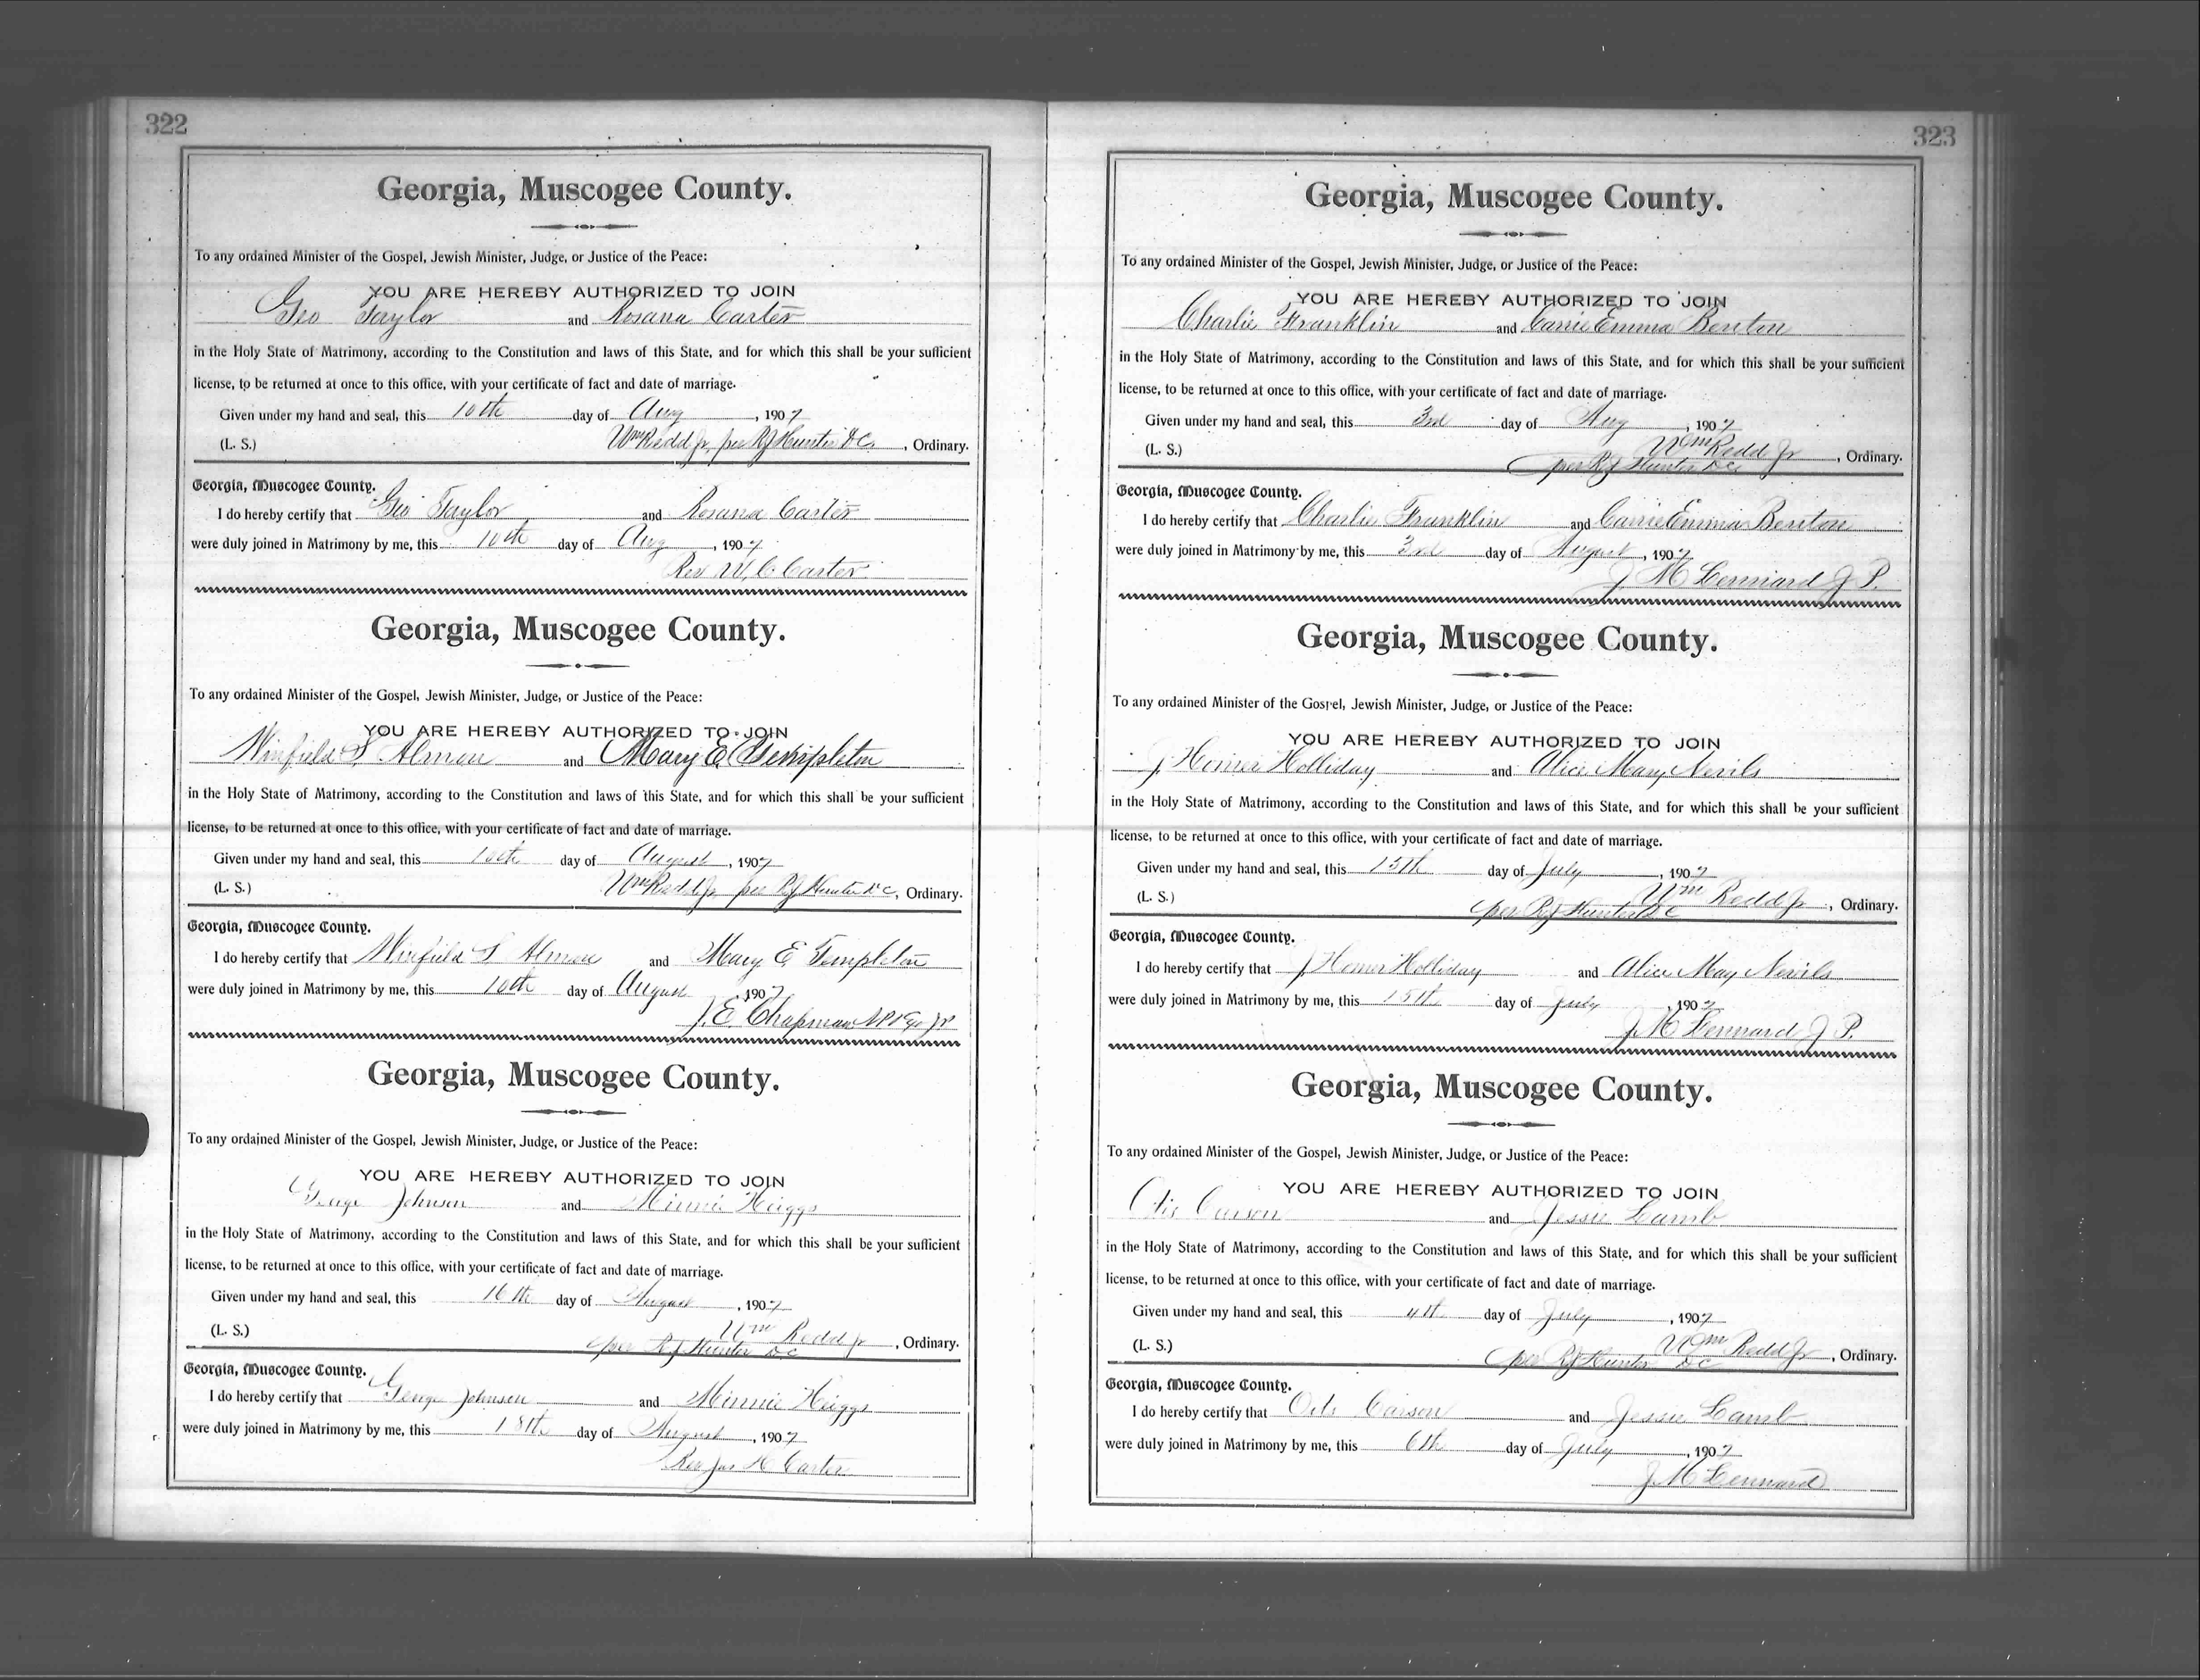 322
Georgia, Muscogee County.
To any ordained Minister of the Gospel, Jewish Minister, Judge, or Justice of the Peace:
YOU ARE HEREBY AUTHORIZED TO JOIN
Geo Taylor and Rosana Carter
in the Holy State of Matrimony, according to the Constitution and laws of this State, and for which this shall be your sufficient
license, to be returned at once to this office, with your certificate of fact and date of marriage.
Given under my hand and seal, this 10th day of Aug, 1907
(L. S.) Wm Redd Jr, per RJ Hunter DC, Ordinary.
Georgia, Muscogee County.
I do hereby certify that Geo Taylor and Rosana Carter
were duly joined in Matrimony by me, this 10th day of Aug, 1907
Rev W. C Carter
Georgia, Muscogee County.
To any ordained Minister of the Gospel, Jewish Minister, Judge, or Justice of the Peace:
YOU ARE HEREBY AUTHORIZED TO JOIN
Winfield S. Almon and Mary E. Templeton
in the Holy State of Matrimony, according to the Constitution and laws of this State, and for which this shall be your sufficient
license, to be returned at once to this office, with your certificate of fact and date of marriage.
Given under my hand and seal, this 10th day of August, 1907
(L. S.) Wm Redd Jr, per RJ Hunter DC, Ordinary.
Georgia, Muscogee County.
I do hereby certify that Winfield S Almon and Mary E Templeton
were duly joined in Matrimony by me, this 10th day of August 1907
J. E. Chapman NP & Ex JP
Georgia, Muscogee County.
To any ordained Minister of the Gospel, Jewish Minister, Judge, or Justice of the Peace:
YOU ARE HEREBY AUTHORIZED TO JOIN
George Johnson and Minnie Heiggs
in the Holy State of Matrimony, according to the Constitution and laws of this State, and for which this shall be your sufficient
license, to be returned at once to this office, with your certificate of fact and date of marriage.
Given under my hand and seal, this 16th day of August, 1907
(L. S.) Wm Redd Jr, Ordinary.
per RJ Hunter DC
Georgia, Muscogee County.
I do hereby certify that George Johnson and Minnie Heiggs
were duly joined in Matrimony by me, this 18th day of August, 1907
Rev Jas H Carter
323
Georgia, Muscogee County.
To any ordained Minister of the Gospel, Jewish Minister, Judge, or Justice of the Peace:
YOU ARE HEREBY AUTHORIZED TO JOIN
Charlie Franklin and Carrie Emma Benton
in the Holy State of Matrimony, according to the Constitution and laws of this State, and for which this shall be your sufficient
license, to be returned at once to this office, with your certificate of fact and date of marriage.
Given under my hand and seal, this 3rd day of Aug, 1907
(L. S.) Wm Redd Jr, Ordinary.
per RJ Hunter DC
Georgia, Muscogee County.
I do hereby certify that Charlie Franklin and Carrie Emma Benton
were duly joined in Matrimony by me, this 3rd day of August, 1907
J M Lennard J P.
Georgia, Muscogee County.
To any ordained Minister of the Gospel, Jewish Minister, Judge, or Justice of the Peace:
YOU ARE HEREBY AUTHORIZED TO JOIN
J Homer Holliday and Alice Mary Nevils
in the Holy State of Matrimony, according to the Constitution and laws of this State, and for which this shall be your sufficient
license, to be returned at once to this office, with your certificate of fact and date of marriage.
Given under my hand and seal, this 15th day of July, 1907
(L. S.) Wm Redd Jr, Ordinary.
per RJ Hunter DC
Georgia, Muscogee County.
I do hereby certify that J Homer Holliday and Alice May Nevils
were duly joined in Matrimony by me, this 15th day of July, 1907
J M Lennard J P.
Georgia, Muscogee County.
To any ordained Minister of the Gospel, Jewish Minister, Judge, or Justice of the Peace:
YOU ARE HEREBY AUTHORIZED TO JOIN
Otis Carson and Jessie Lamb
in the Holy State of Matrimony, according to the Constitution and laws of this State, and for which this shall be your sufficient
license, to be returned at once to this office, with your certificate of fact and date of marriage.
Given under my hand and seal, this 4th day of July, 1907
(L. S.) Wm Redd Jr, Ordinary.
per RJ Hunter DC
Georgia, Muscogee County.
I do hereby certify that Otis Carson and Jessie Lamb
were duly joined in Matrimony by me, this 6th day of July, 1907
J M Lennard